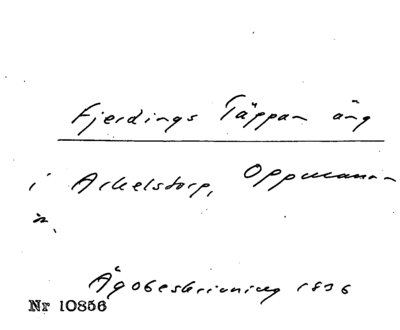 Fjerdings Täppan äng
i Arkelstorp, Oppmanna
Ägobeskrivning 1836
Nr 10856